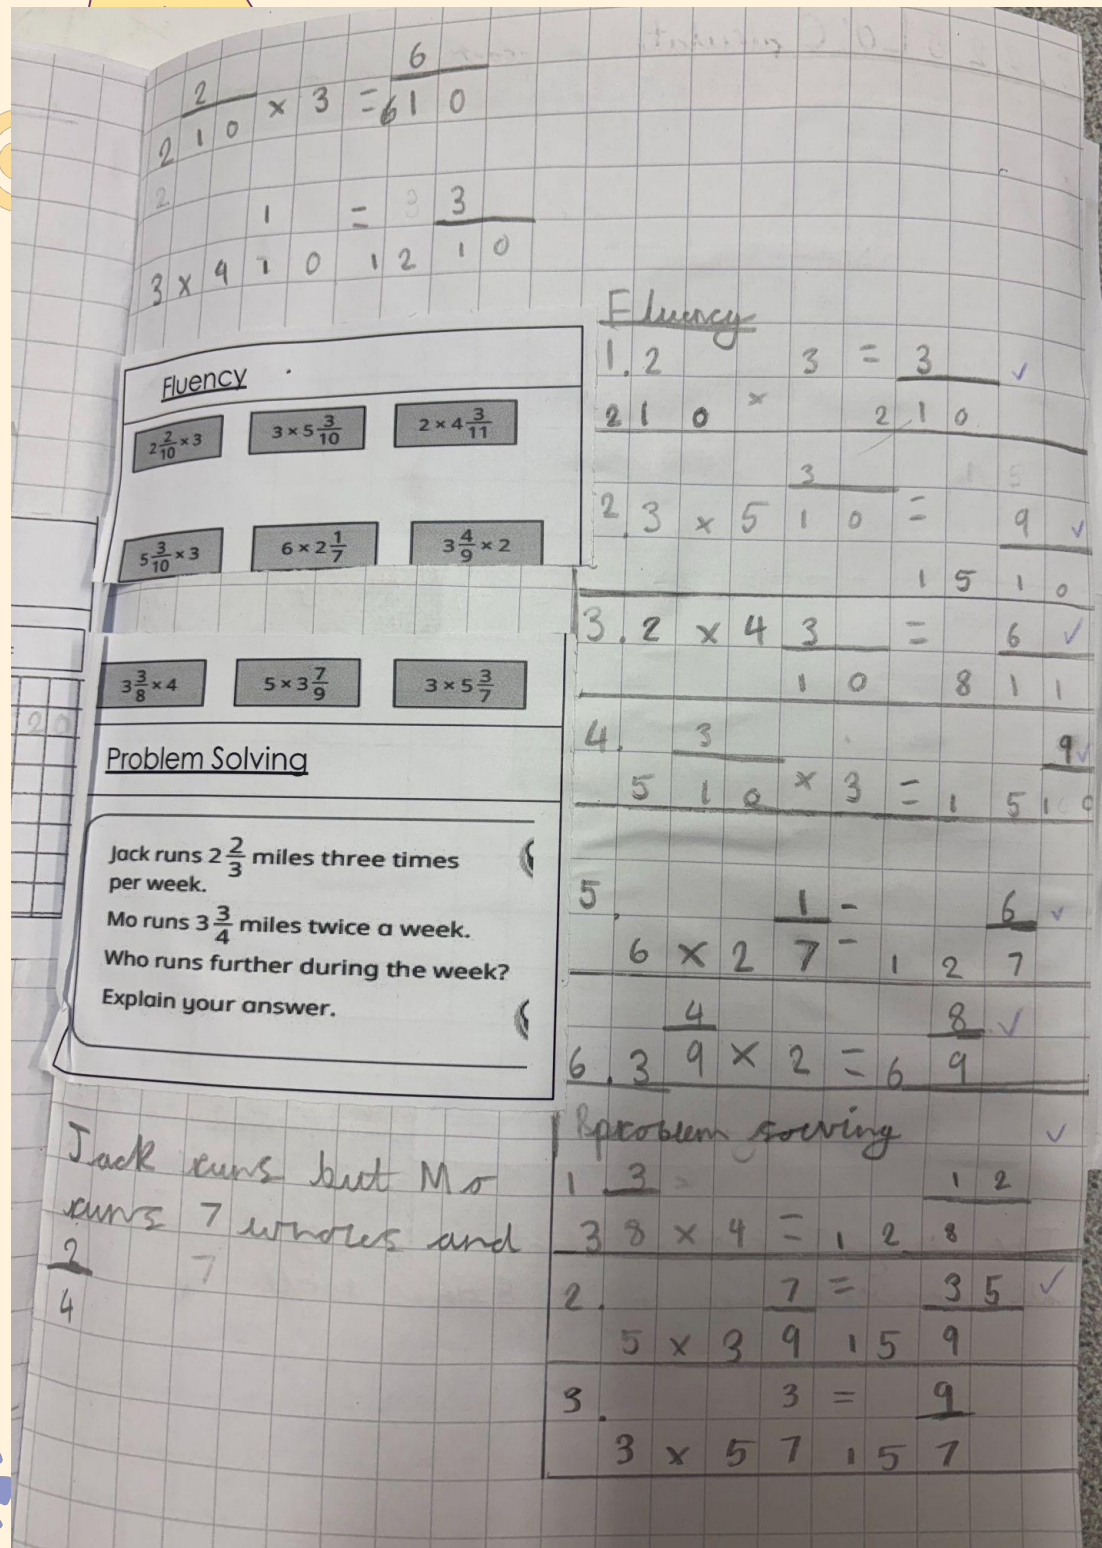 2 2/10 × 3 = 6 6/10
3 × 4 1/10 = 12 3/10
Fluency
2 2/10 × 3
3 × 5 3/10
2 × 4 3/11
5 3/10 × 3
6 × 2 1/7
3 4/9 × 2
3 3/8 × 4
5 × 3 7/9
3 × 5 3/7
Problem Solving
Jack runs 2 2/3 miles three times
per week.
Mo runs 3 3/4 miles twice a week.
Who runs further during the week?
Explain your answer.
Jack runs but Mo
runs 7 wholes and
2/4
Fluency
1. 2 3 = 3
2 1 0 × 2 1 0
2. 3 × 5 3/10 = 15 9/10
3. 2 × 4 3/10 = 8 6/11
4. 5 3/10 × 3 = 15 9/10
5. 6 × 2 1/7 = 12 6/7
6. 3 4/9 × 2 = 6 8/9
problem soeving
1 3 3/8 × 4 = 12 12/8
2. 5 × 3 7/9 = 15 35/9
3. 3 × 5 3/7 = 15 9/7